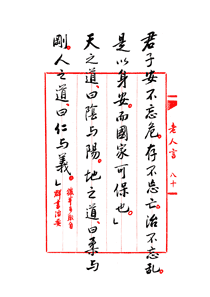 老人言 八十
君子安不忘危。存不忘亡。治不忘亂。
是以身安。而國家可保也。」
天之道。曰陰与陽。地之道。曰柔与
剛。人之道。曰仁与義。」
群書治要